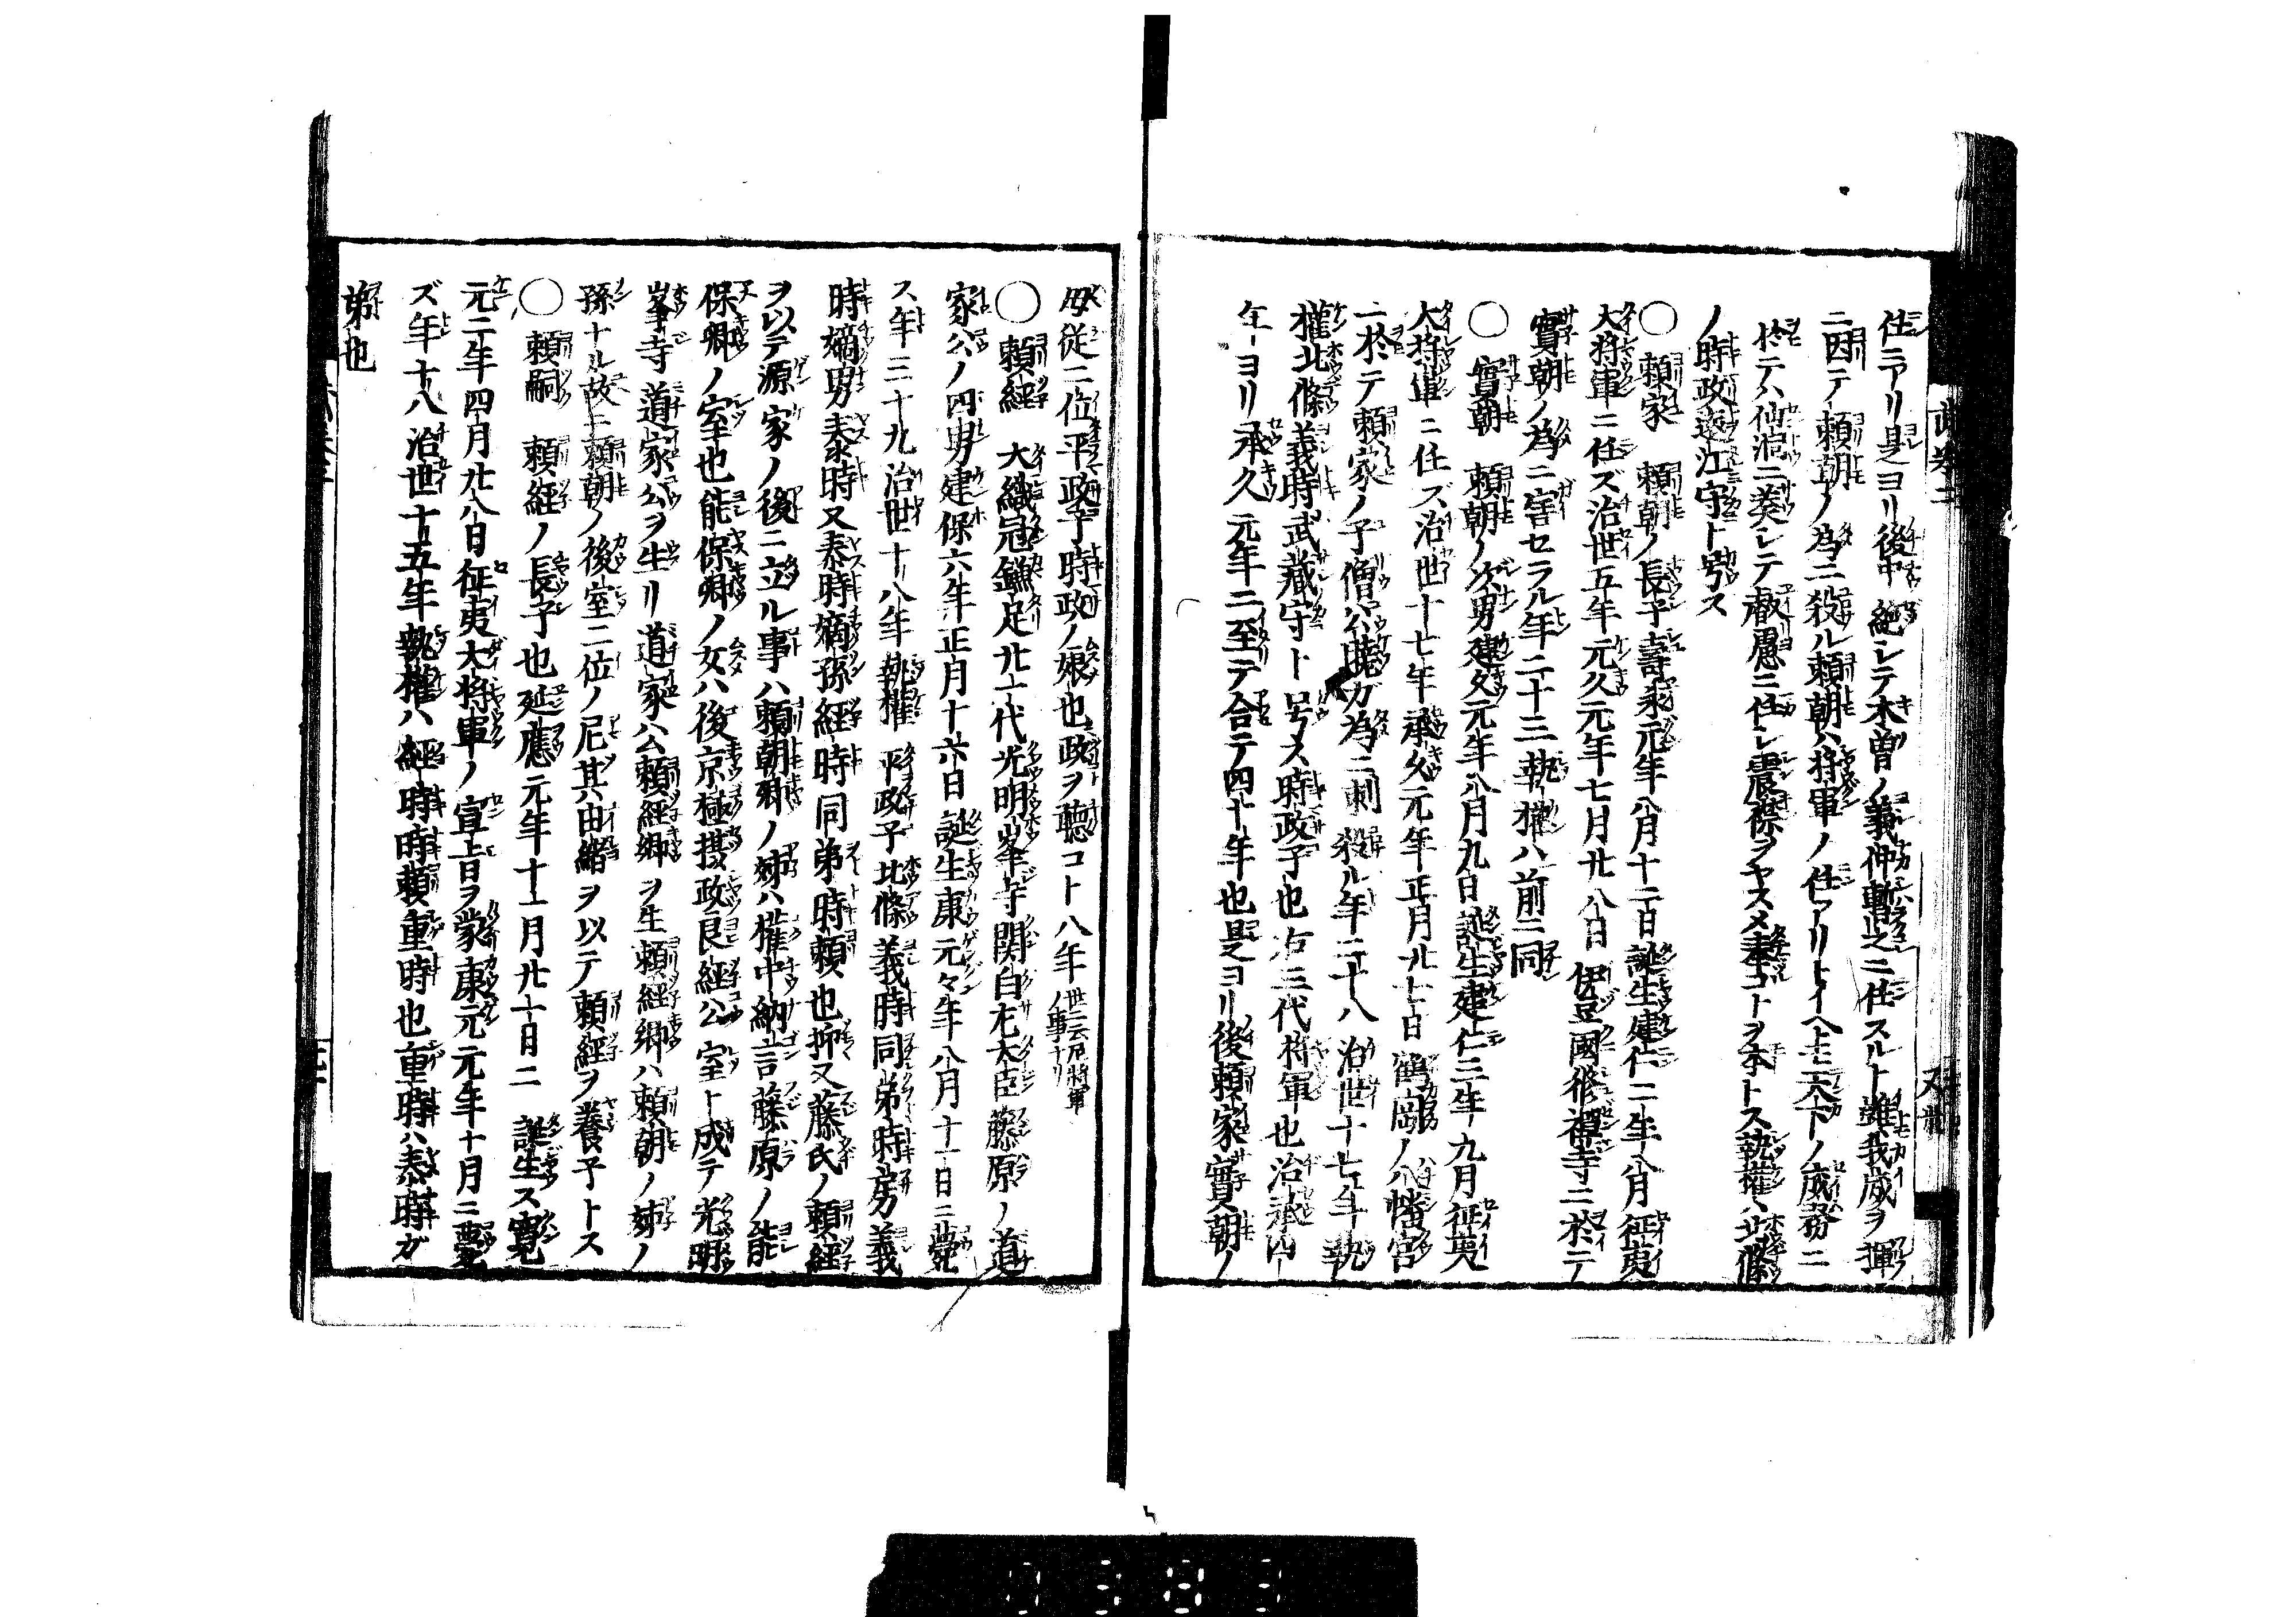 任ニアリ是ヨリ後中絶シテ木曽ノ義仲暫之ニ任スルト雖我威ヲ揮
ニ因テ頼朝ノ為ニ殺ル頼朝ハ将軍ノ任アリトイヘトモ天下ノ成務ニ
於テハ仙洞ニ奏シテ叡慮ニ任シ震襟ヲヤスメ奉コトヲ本トス執権ハ北條
ノ時政遠江守ト号ス
○頼家 頼朝ノ長子壽永元年八月十二日誕生建仁二年八月征夷
大将軍ニ任ズ治世五年元久元年七月廿八日伊豆國修禅寺ニ於テ
實朝ノ為ニ害セラル年二十三執権ハ前ニ同
○實朝 頼朝ノ次男建久元年八月九日誕生建仁三年九月征夷
大将軍ニ任ズ治世十七年承久元年正月廿七日鶴岡ノ八幡宮
ニ於テ頼家ノ子僧公暁カ為ニ刺殺ル年二十八治世十七年執
権北條義時武藏守ト号ス時政子也右三代将軍也治承四
年ヨリ承久元年ニ至テ合テ四十年也是ヨリ後頼家實朝ノ
母従二位平政子時政ノ娘也政ヲ聴コト八年世ニ云尼将軍ノ事ナリ
○頼經 大織冠鎌足廿一代光明峯寺関白左大臣藤原ノ道
家公ノ四男建保六年正月十六日誕生康元々年八月十一日ニ薨
ス年三十九治世十八年執権 平政子北條義時同弟時房義
時嫡男泰時又泰時嫡孫經時同弟時頼也抑又藤氏ノ頼經
ヲ以テ源家ノ後ニ立ル事ハ頼朝卿ノ姉ハ権中納言藤原ノ能
保卿ノ室也能保卿ノ女ハ後京極摂政良經公室ト成テ光明
峯寺道家公ヲ生リ道家公頼經卿ヲ生頼經卿ハ頼朝ノ姉ノ
孫ナル故ニ頼朝ノ後室二位ノ尼其由緒ヲ以テ頼經ヲ養子トス
○頼嗣 頼經ノ長子也延應元年十一月廿一日ニ誕生ス寛
元二年四月廿八日征夷大将軍ノ宣旨ヲ蒙康元元年十月ニ薨
ズ年十八治世十五年執権ハ經時時頼重時也重時ハ泰時ガ
弟也